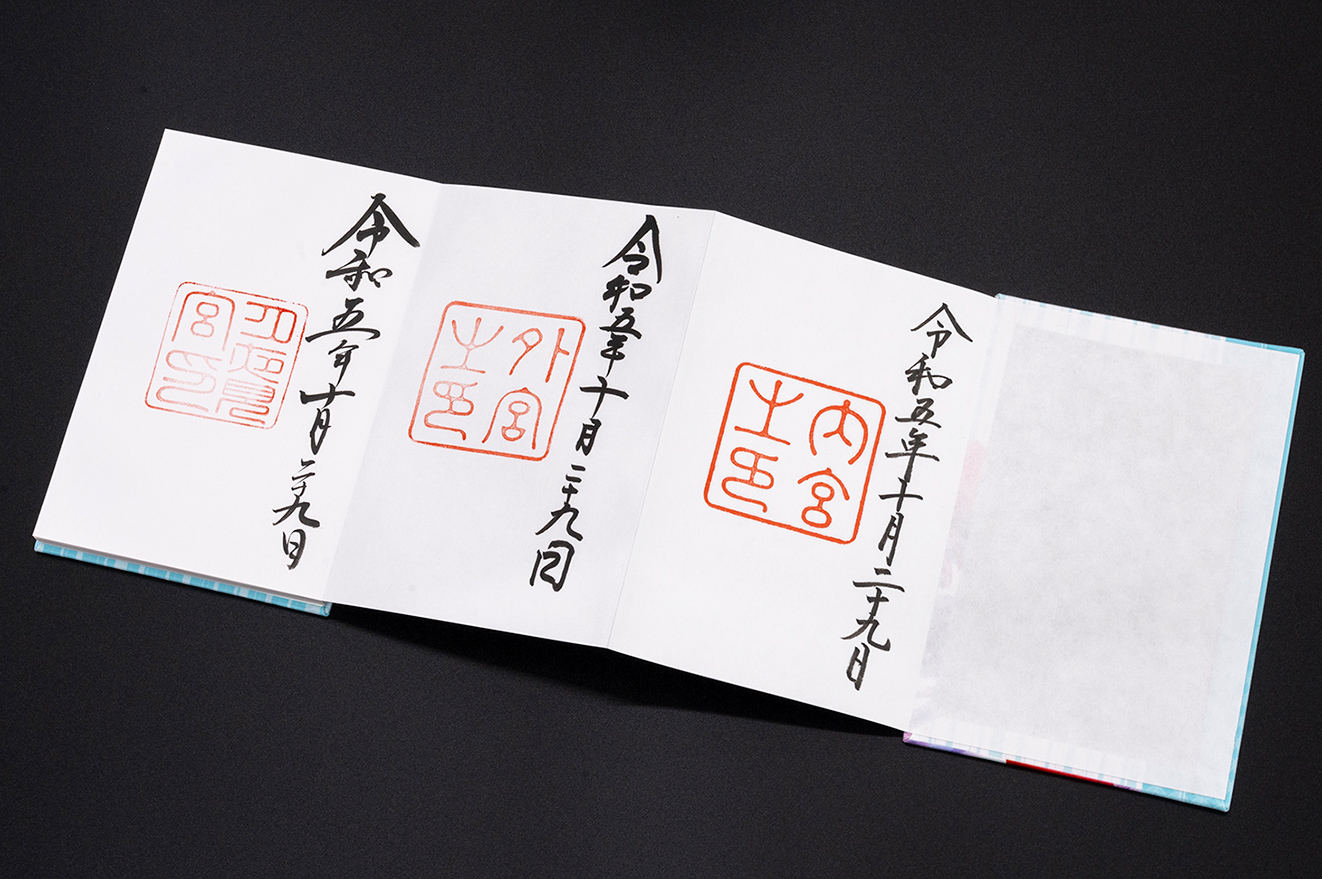 令和五年十月二十九日
内宮
之印
令和五年十月二十九日
外宮
之印
令和五年十月二十九日
月夜見
宮印